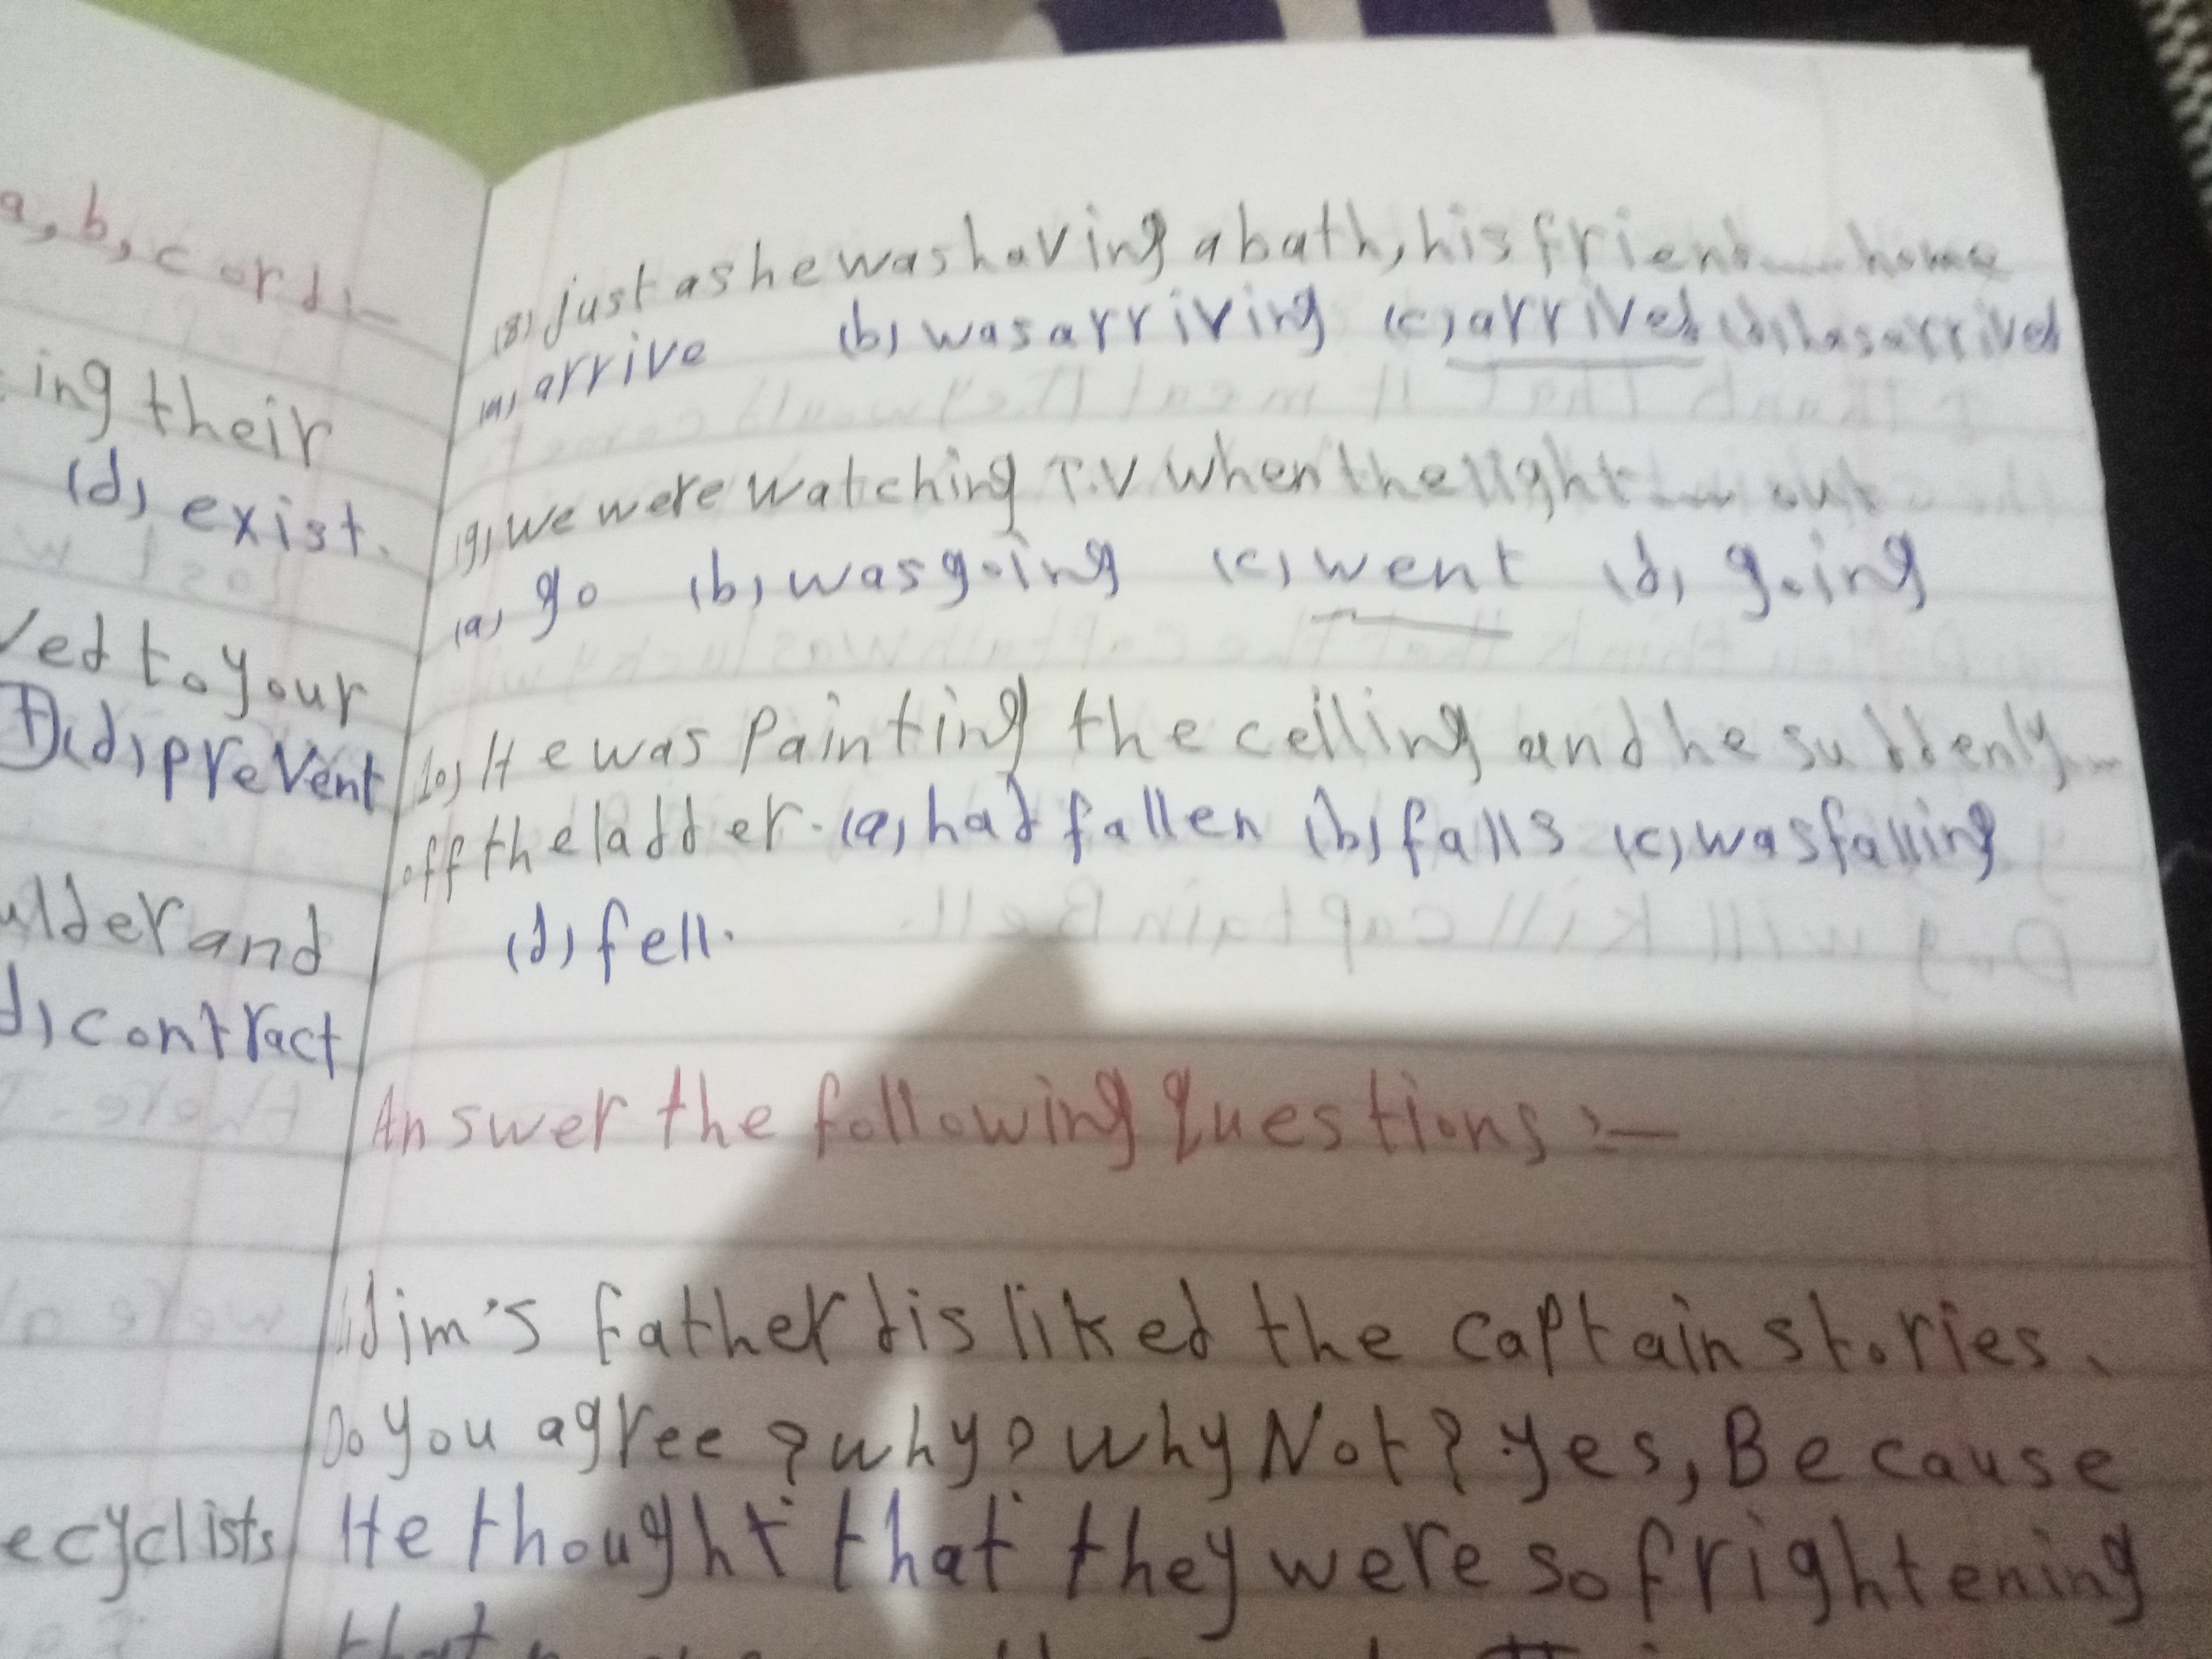 a, b, c or d:-
ing their
(d) exist.
ved to your
(d) prevent
ulder and
d) contract
ecyclists
(8) just as he was having a bath, his friend ...... home
(a) arrive (b) was arriving (c) arrived (d) has arrived
(9) we were watching T.V when the light ...... out
(a) go (b) was going (c) went (d) going
10) He was Painting the ceiling and he suddenly ...
off the ladder. (a) had fallen (b) falls (c) was falling
(d) fell.
Answer the following questions :-
1) Jim's father disliked the captain stories.
Do you agree ? why? why Not? yes, Because
He thought that they were so frightening
that